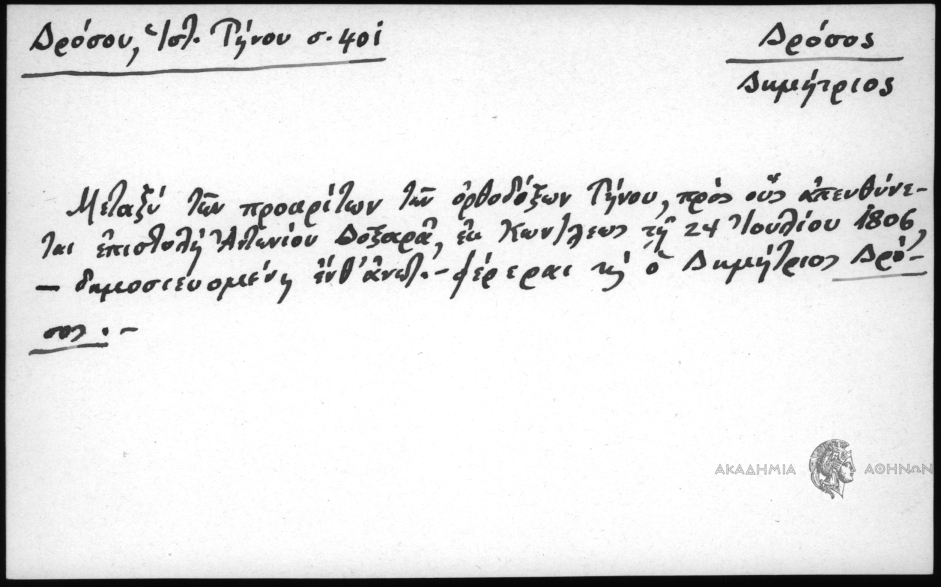 Δρόσου, Ἱστ. Τήνου σ. 401
Δρόσος
Δημήτριος
Μεταξύ τῶν προκρίτων τῶν ὀρθοδόξων Τήνου, πρός οὕς ἀπευθύνε-
ται ἐπιστολή Ἀντωνίου Δοξαρᾶ, ἐκ Κων/λεως τῇ 24 Ἰουλίου 1806,
— δημοσιευομένη ἐνθ' ἀνωτ. — φέρεται καί ὁ Δημήτριος Δρό-
σος. —
ΑΚΑΔΗΜΙΑ ΑΘΗΝΩΝ